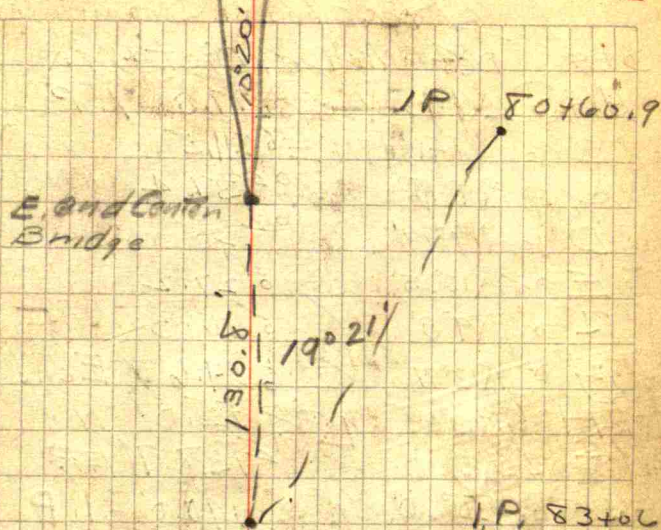 10°20'
I.P. 80+60.9
E. end Canton
Bridge
130.81
19°21'
I.P. 83+06